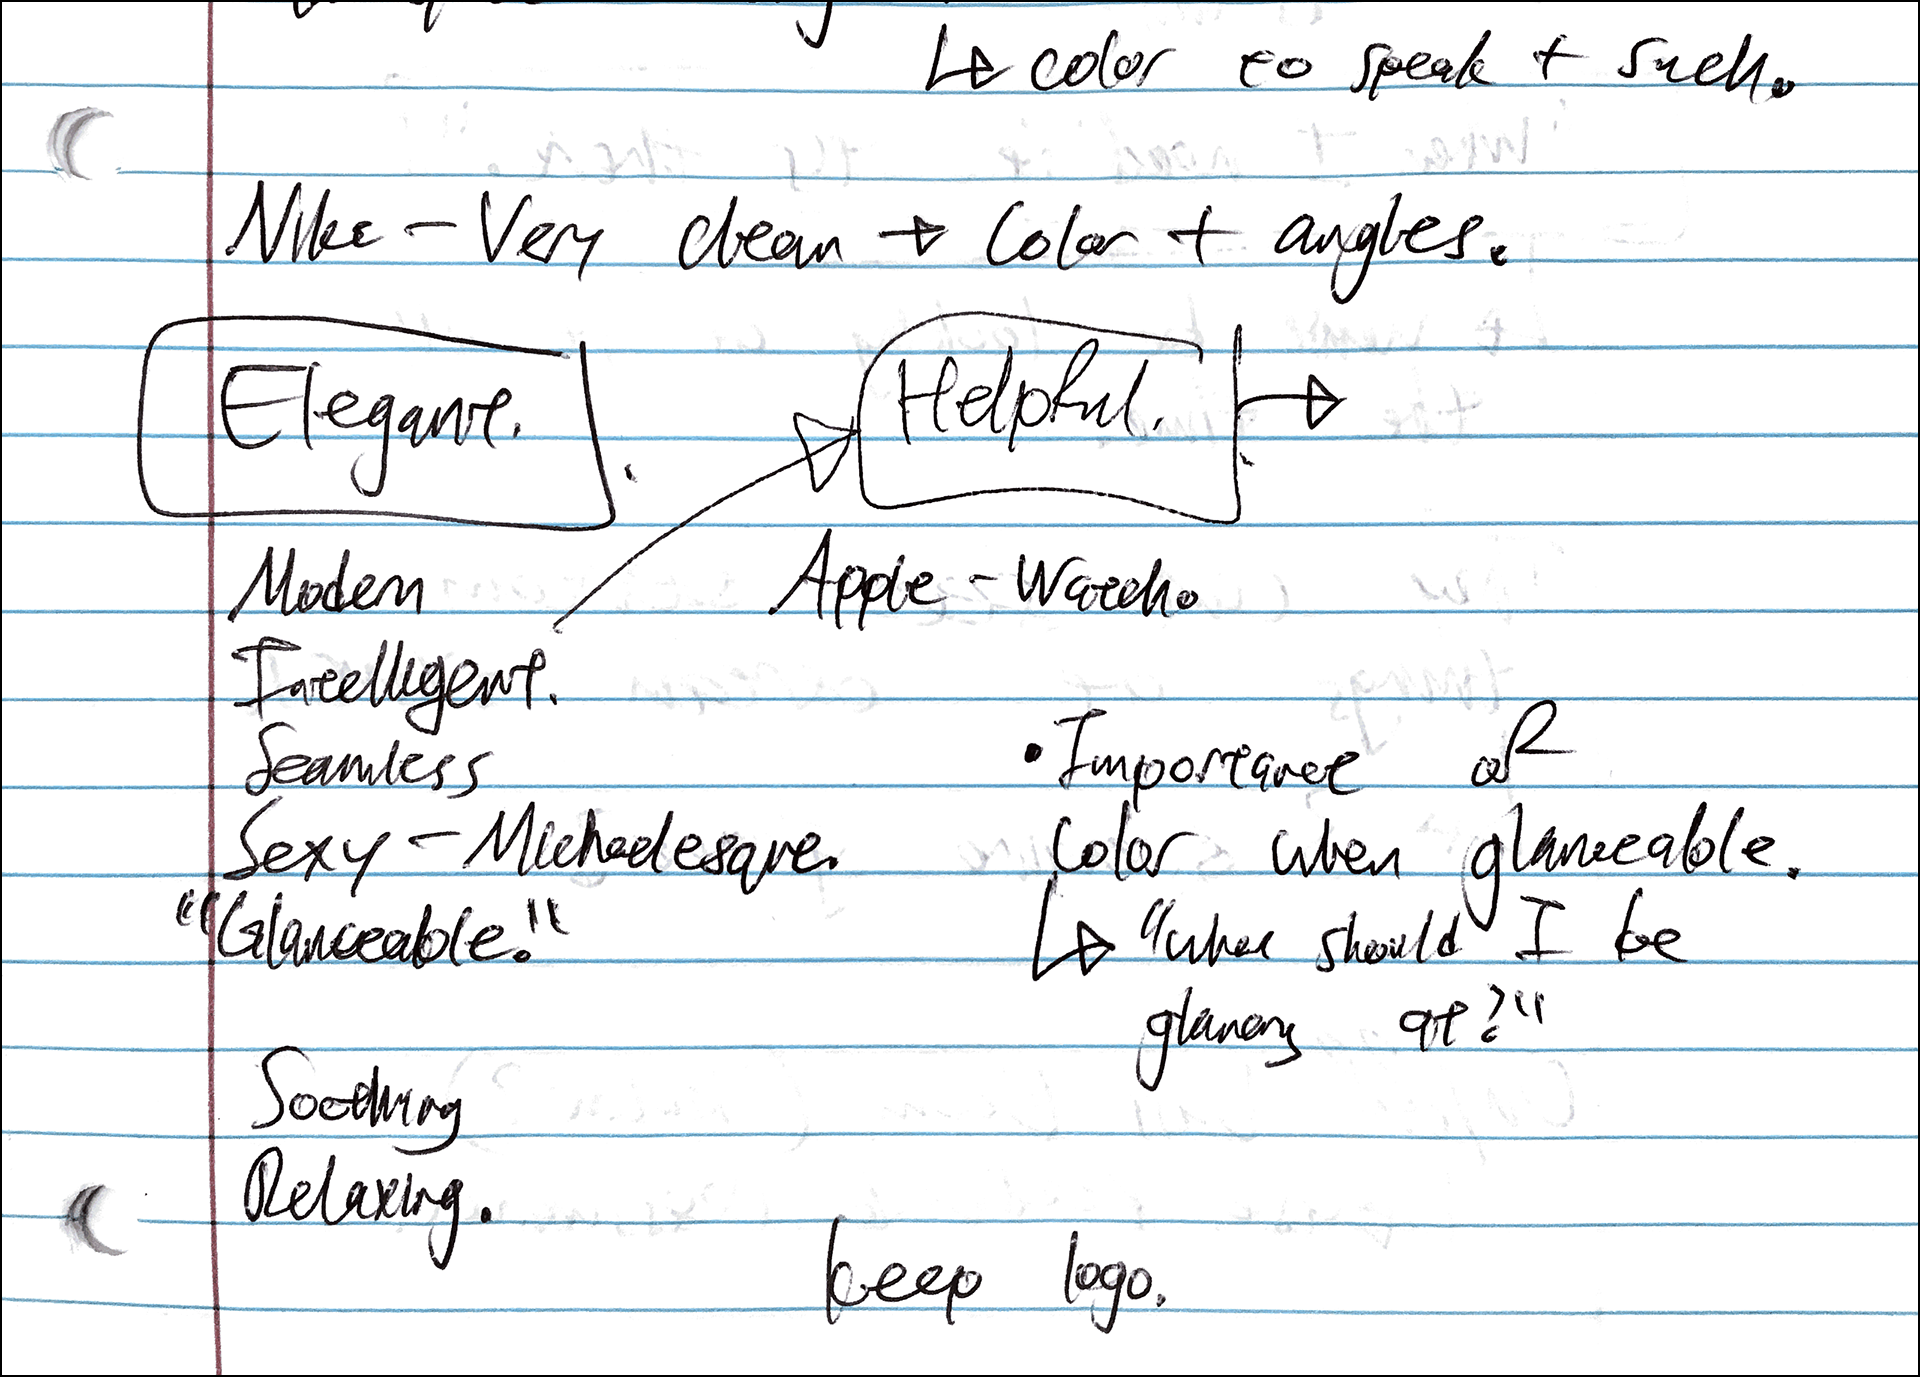 ↳ color to speak + such.
Nike - Very clean → Color + angles.
Elegant. Helpful. →
Modern Apple - Watch.
Intelligent.
Seamless • Importance of
Sexy - Michaelesque. Color when glanceable.
"Glanceable." ↳ "What should I be
glancing at?"
Soothing
Relaxing.
keep logo.